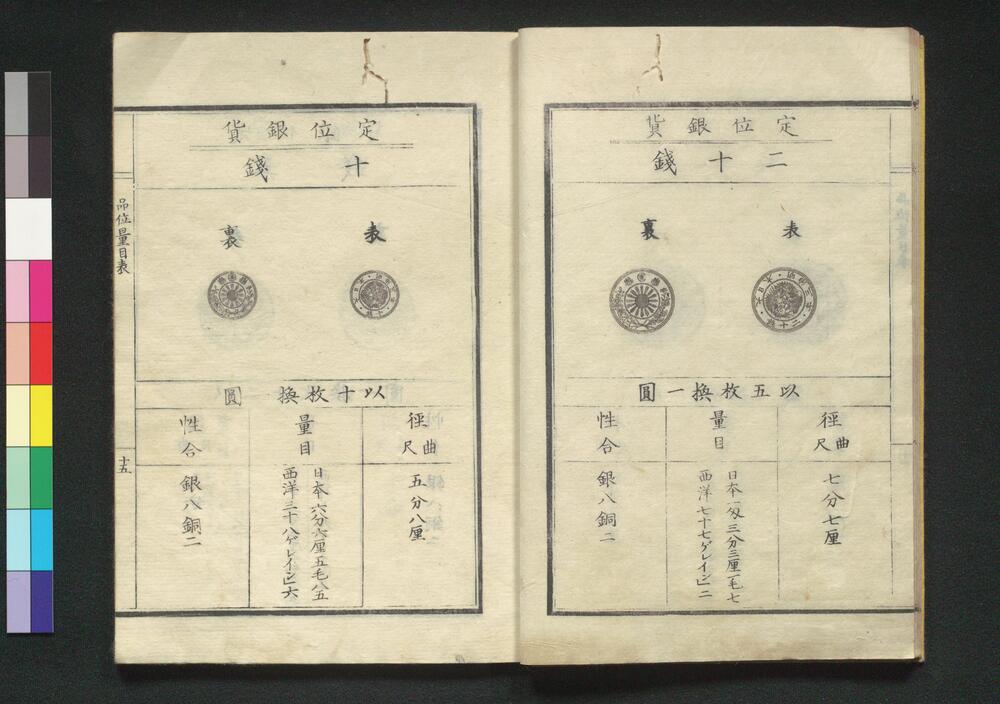 定位銀貨
二十錢
表
裏
以五枚換一圓
徑
曲尺
七分七厘
量目
日本一匁三分三厘一毛七
西洋七十七ゲレイン二
性合
銀八銅二
定位銀貨
十錢
表
裏
以十枚換圓
徑
曲尺
五分八厘
量目
日本六分六厘五毛八五
西洋三十八ゲレイン六
性合
銀八銅二
品位量目表
十五